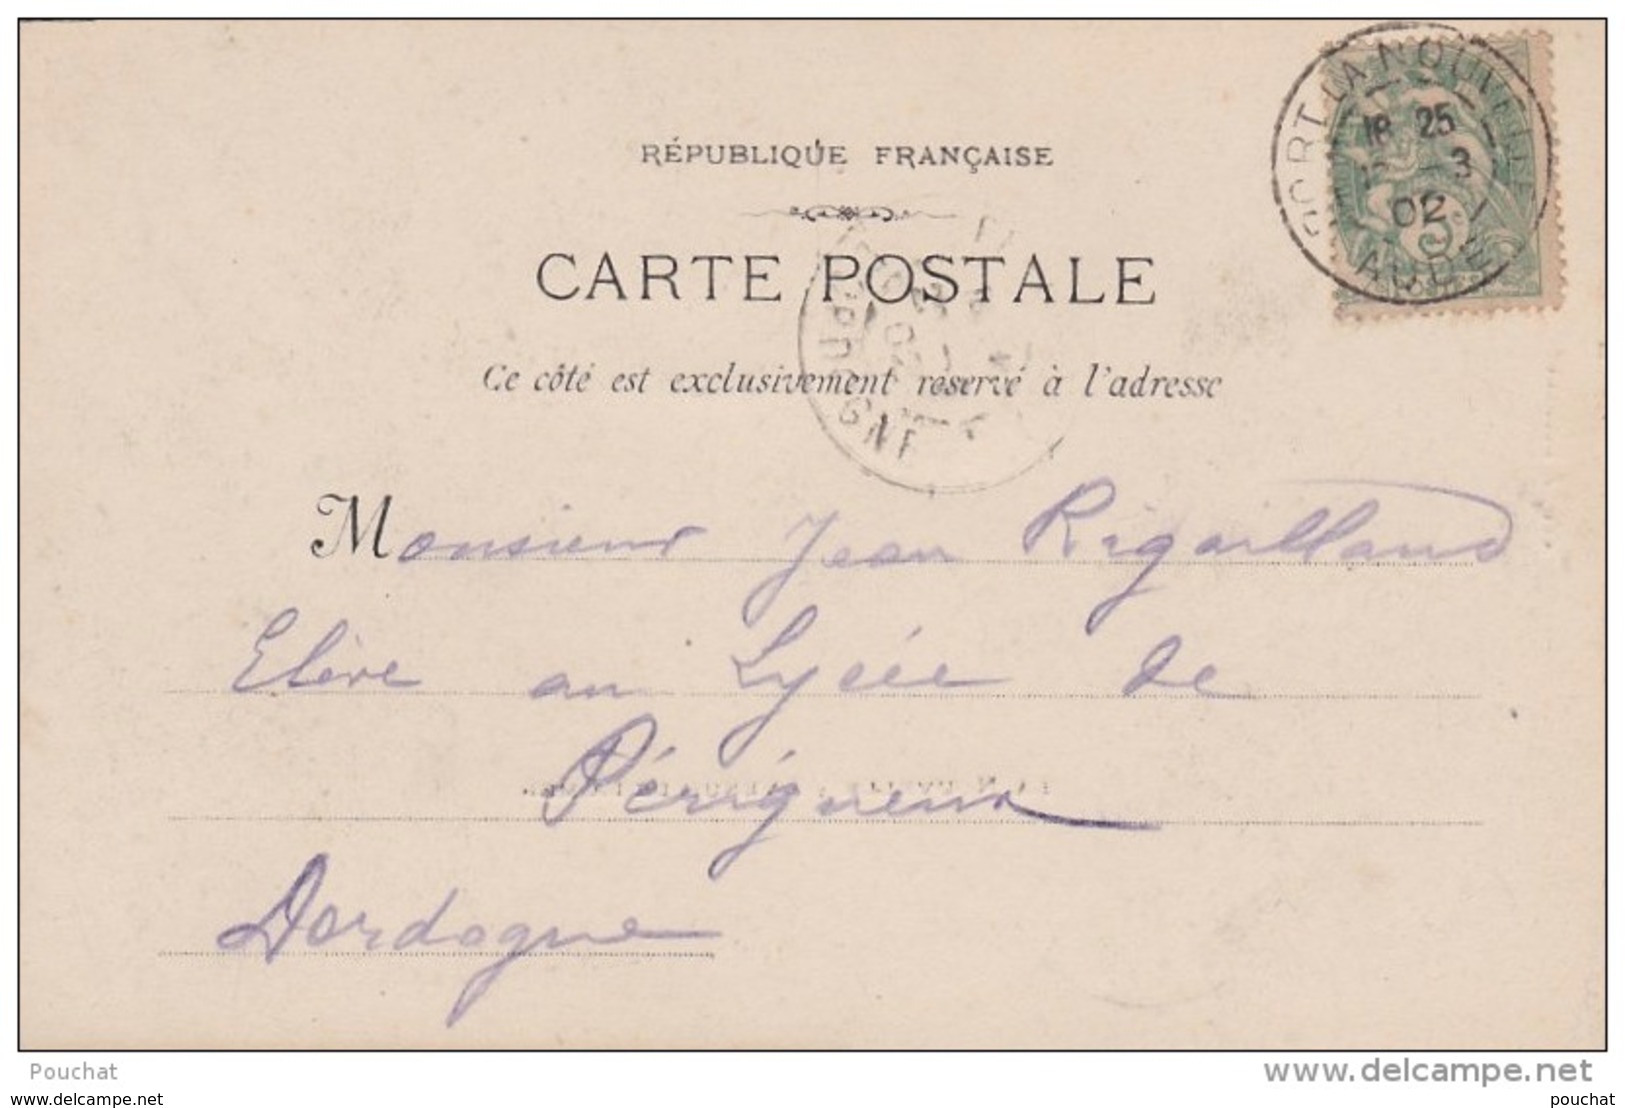 RÉPUBLIQUE FRANÇAISE
CARTE POSTALE
Ce côté est exclusivement reservé à l'adresse
PORT LA NOUVELLE
18 25
3
02
AUDE
5c
DORDOGNE
Monsieur Jean Rigaillaud
Elève au Lycée de
Périgueux
Dordogne
Pouchat
www.delcampe.net
pouchat
pouchat